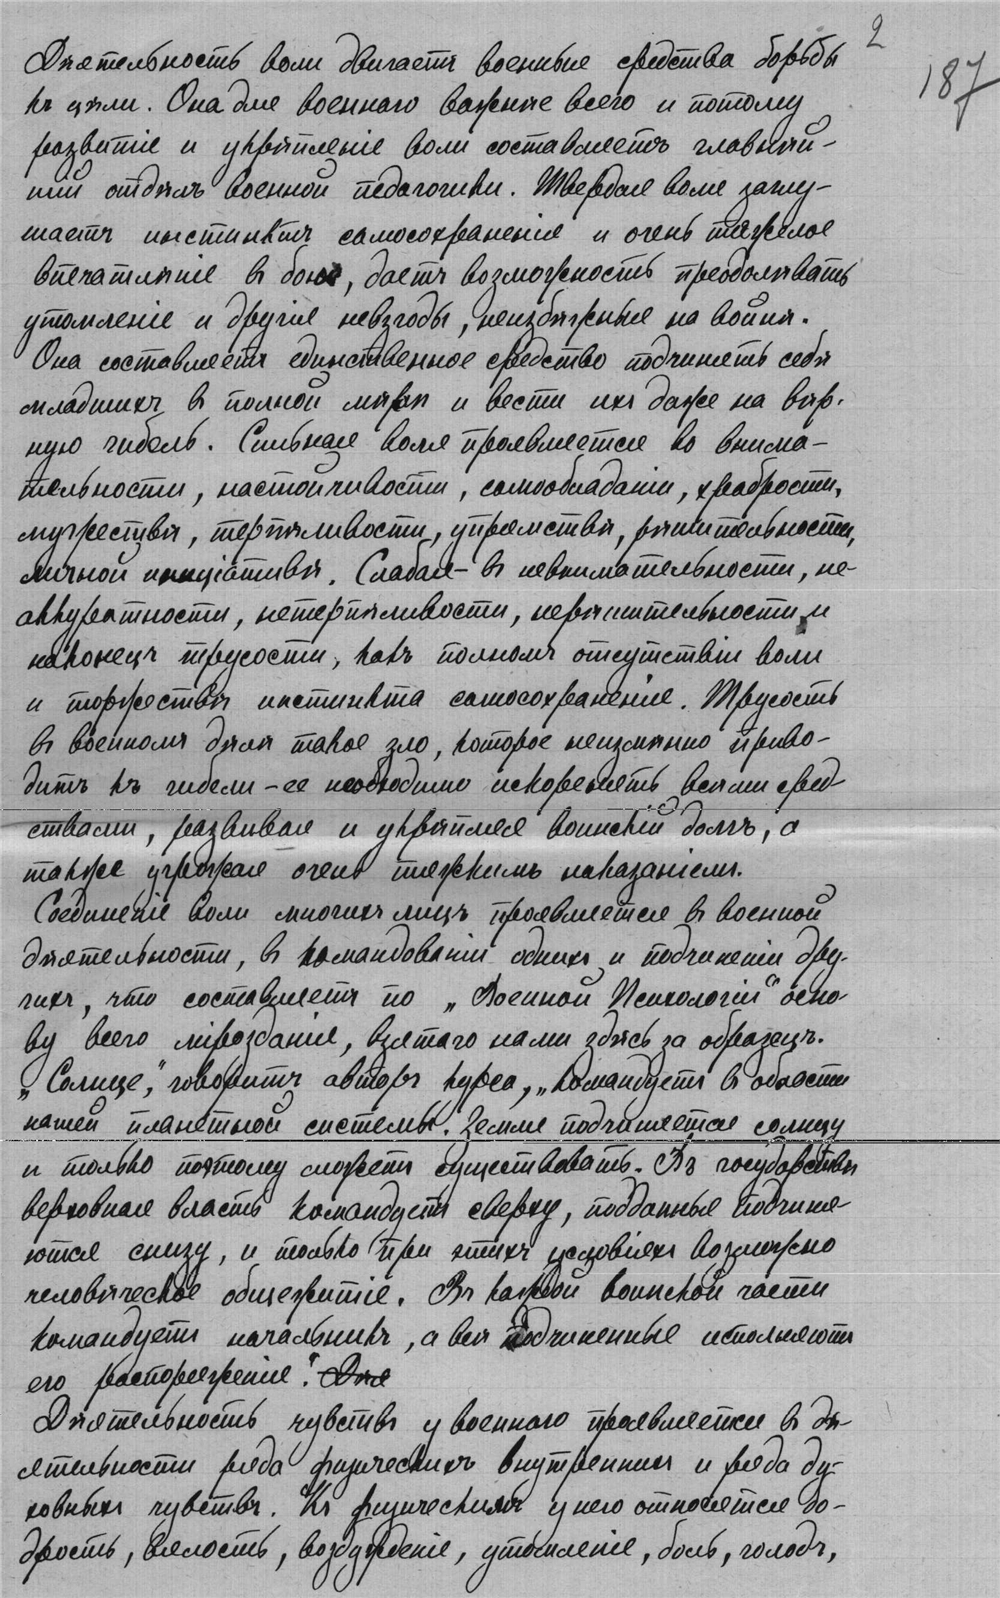 2
187
Дѣятельность воли двигаетъ военныя средства борьбы
къ цѣли. Она для военнаго важнѣе всего и потому
развитіе и укрѣпленіе воли составляетъ главнѣй-
шій отдѣлъ военной педагогики. Твердая воля заглу-
шаетъ инстинктъ самосохраненія и очень тяжелое
впечатлѣніе въ бою, даетъ возможность преодолѣвать
утомленіе и другія невзгоды, неизбѣжныя на войнѣ.
Она составляетъ единственное средство подчинять себѣ
младшихъ въ полной мѣрѣ и вести ихъ даже на вѣр-
ную гибель. Сильная воля проявляется во внима-
тельности, настойчивости, самообладаніи, храбрости,
мужествѣ, терпѣливости, упрямствѣ, рѣшительности,
личной иниціативѣ. Слабая - въ невнимательности, не-
аккуратности, нетерпѣливости, нерѣшительности и
наконецъ трусости, какъ полномъ отсутствіи воли
и торжествѣ инстинкта самосохраненія. Трусость
въ военномъ дѣлѣ такое зло, которое неизмѣнно приво-
дитъ къ гибели - ее необходимо искоренять всѣми сред-
ствами, развивая и укрѣпляя воинскій долгъ, а
также угрожая очень тяжкимъ наказаніемъ.
Соединеніе воли многихъ лицъ проявляется въ военной
дѣятельности, въ командованіи однихъ и подчиненіи дру-
гихъ, что составляетъ по „Военной Психологіи“ осно-
ву всего мірозданія, взятаго нами здѣсь за образецъ.
„Солнце,“ говоритъ авторъ курса, „командуетъ въ области
нашей планетной системы. Земля подчиняется солнцу
и только поэтому можетъ существовать. Въ государствѣ
верховная власть командуетъ сверху, подданные подчиня-
ются снизу, и только при этихъ условіяхъ возможно
человѣческое общежитіе. Въ каждой воинской части
командуетъ начальникъ, а всѣ подчиненные исполняютъ
его распоряженія“. Для
Дѣятельность чувствъ у военнаго проявляется въ дѣ-
ятельности ряда физическихъ внутреннихъ и ряда ду-
ховныхъ чувствъ. Къ физическимъ у него относятся бо-
дрость, вялость, возбужденіе, утомленіе, боль, голодъ,